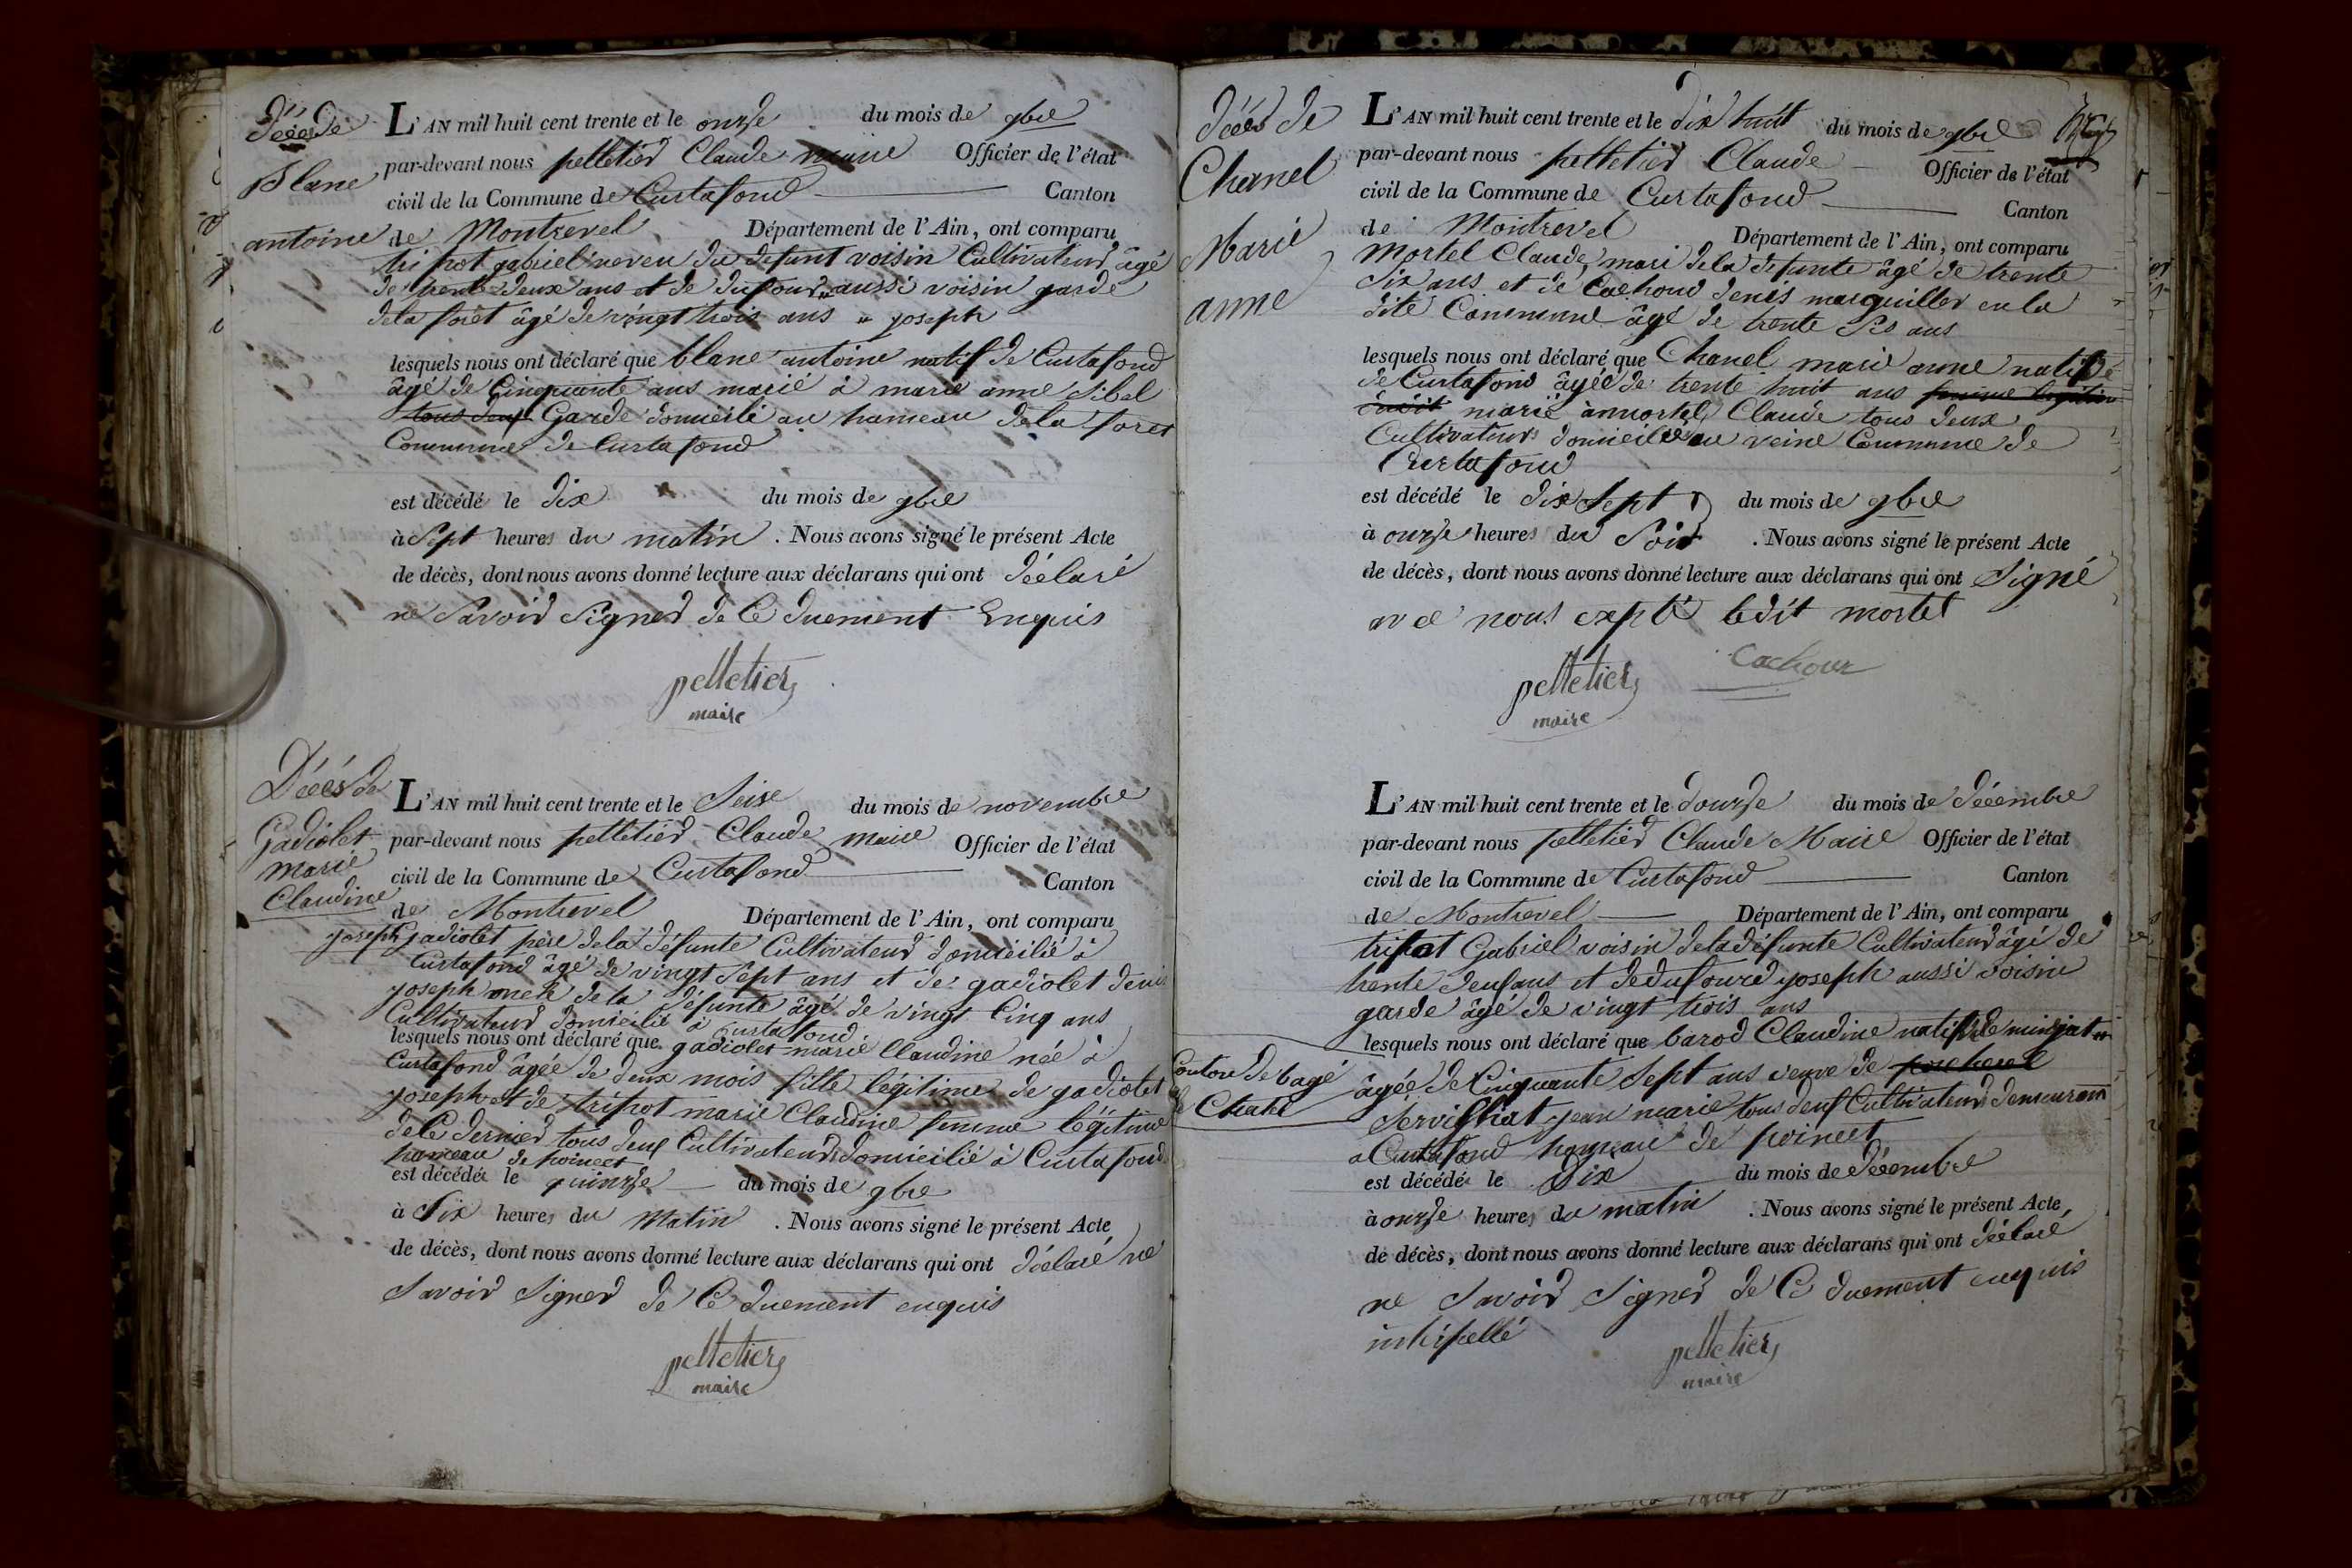 décès de
Blanc
antoine
L'AN mil huit cent trente et le onze du mois de 9bre
par-devant nous pelletier Claude maire Officier de l'état
civil de la Commune de Curtafond Canton
de Montrevel Département de l'Ain, ont comparu
tripot gabriel neveu du defunt voisin Cultivateur âgé
de trente deux ans et de dufour aussi voisin garde
de la forêt âgé de vingt trois ans " joseph
lesquels nous ont déclaré que blanc antoine natif de Curtafond
âgé de Cinquante ans marié à marie anne Sibel
tous deux Garde domicilié au hameau de la foret
Commune de Curtafond
est décédé le dix du mois de 9bre
à Sept heures du matin . Nous avons signé le présent Acte
de décès, dont nous avons donné lecture aux déclarans qui ont déclaré
ne Savoir Signer de Ce duement Enquis
pelletier
maire
Décès de
Gadiolet
marie
Claudine
L'AN mil huit cent trente et le Seize du mois de novembre
par-devant nous pelletier Claude maire Officier de l'état
civil de la Commune de Curtafond Canton
de Montrevel Département de l'Ain, ont comparu
joseph gadiolet père de la défunte Cultivateur domicilié à
Curtafond âgé de vingt Sept ans et de gadiolet denis
joseph oncle de la défunte âgé de vingt Cinq ans
Cultivateur domicilié à Curtafond
lesquels nous ont déclaré que gadiolet marie Claudine née à
Curtafond âgée de deux mois fille légitime de gadiolet
joseph et de tripot marie Claudine femme légitime
de Ce dernier tous deux Cultivateurs domicilié à Curtafond
hameau de poincet
est décédée le quinze du mois de 9bre
à Six heures du Matin . Nous avons signé le présent Acte
de décès, dont nous avons donné lecture aux déclarans qui ont déclaré ne
Savoir Signer de Ce duement enquis
pelletier
maire
décès de
Chanel
Marie
anne
L'AN mil huit cent trente et le dix huit du mois de 9bre
par-devant nous pelletier Claude Officier de l'état
civil de la Commune de Curtafond Canton
de Montrevel Département de l'Ain, ont comparu
Mortel Claude, mari de la defunte âgé de trente
Six ans et de Cachoud denis marguiller en la
dite Commune âgé de trente Six ans
lesquels nous ont déclaré que Chanel marie anne native
de Curtafond âgée de trente huit ans femme légitime
marié à mortel Claude tous deux
Cultivateurs domiciliés au veine Commune de
Curtafond
est décédé le dix Sept du mois de 9bre
à onze heures du Soir . Nous avons signé le présent Acte
de décès, dont nous avons donné lecture aux déclarans qui ont Signé
avec nous expté ledit mortel
pelletier
maire
Cachour
L'AN mil huit cent trente et le douze du mois de décembre
par-devant nous pelletier Claude Maire Officier de l'état
civil de la Commune de Curtafond Canton
de Montrevel Département de l'Ain, ont comparu
tripot Gabriel voisin de la défunte Cultivateur âgé de
trente deux ans et de dufour joseph aussi voisin
garde âgé de vingt trois ans
lesquels nous ont déclaré que barod Claudine native de
Contone de bagé
le Chatel
âgée de Cinquante Sept ans veuve de
Servilliat jean marie tous deux Cultivateurs demeurant
a Curtafond hameau de poincet
est décédée le Dix du mois de décembre
à onze heures du matin . Nous avons signé le présent Acte
de décès, dont nous avons donné lecture aux déclarans qui ont déclaré
ne Savoir Signer de Ce duement enquis
pelletier
maire